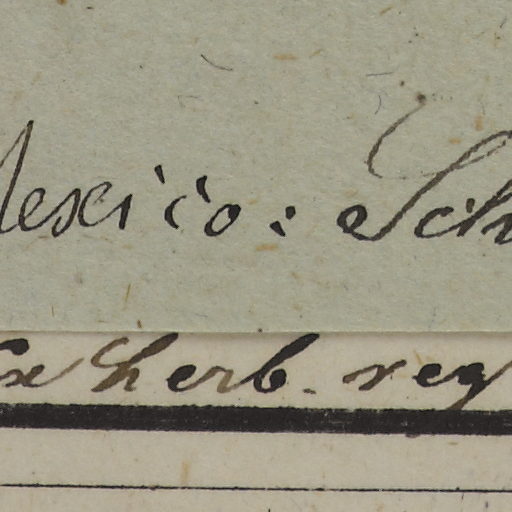 Mexico: Sch
Ex herb. reg